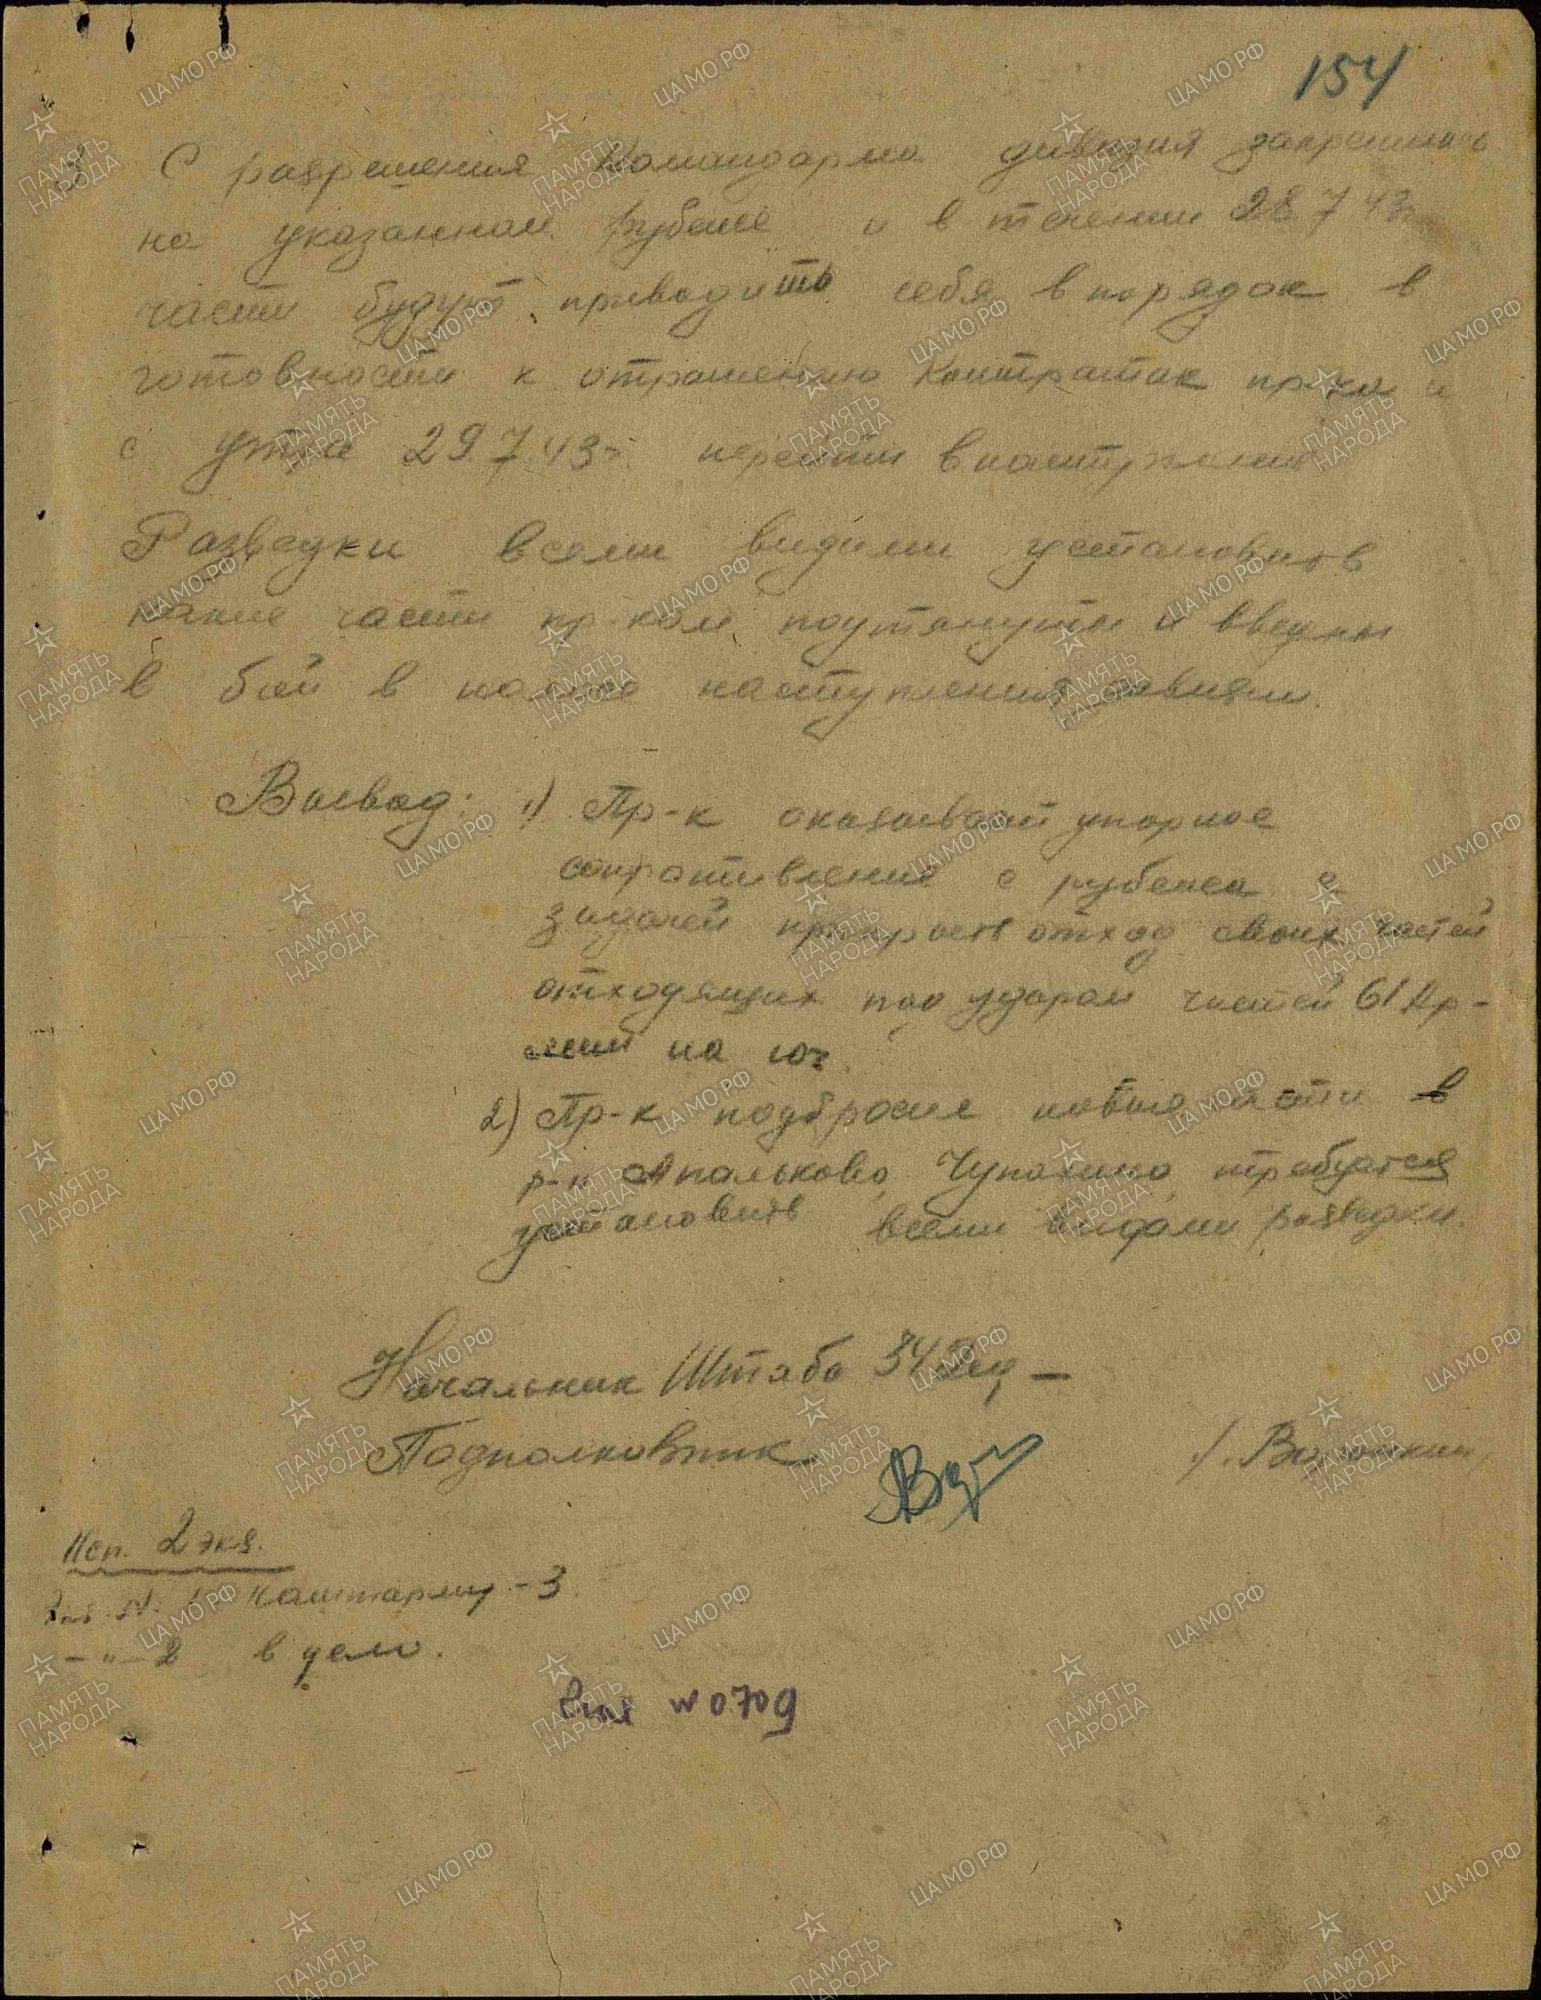 154
С разрешения Командарма дивизия закрепилась
на указанном рубеже и в течении 28.7.43г
части будут приводить себя в порядок в
готовности к отражению контратак пр-ка и
с утра 29.7.43г перейти в наступление
Разведки всеми видами установить
какие части пр-ком подтянуты и введены
в бой в полосе наступления дивизии.
Вывод: 1) Пр-к оказывает упорное
сопротивление с рубежа с
задачей прикрыть отход своих частей
отходящих под ударом частей 61 Ар-
мии на юг.
2) Пр-к подбросил новые части в
р-н Апальково, Чупахино, требуется
установить всеми видами разведки.
Начальник Штаба 342сд —
Подполковник
Исп. 2 экз.
Экз N. 1 Наштарму - 3
- " - 2 в дело.
N 0709